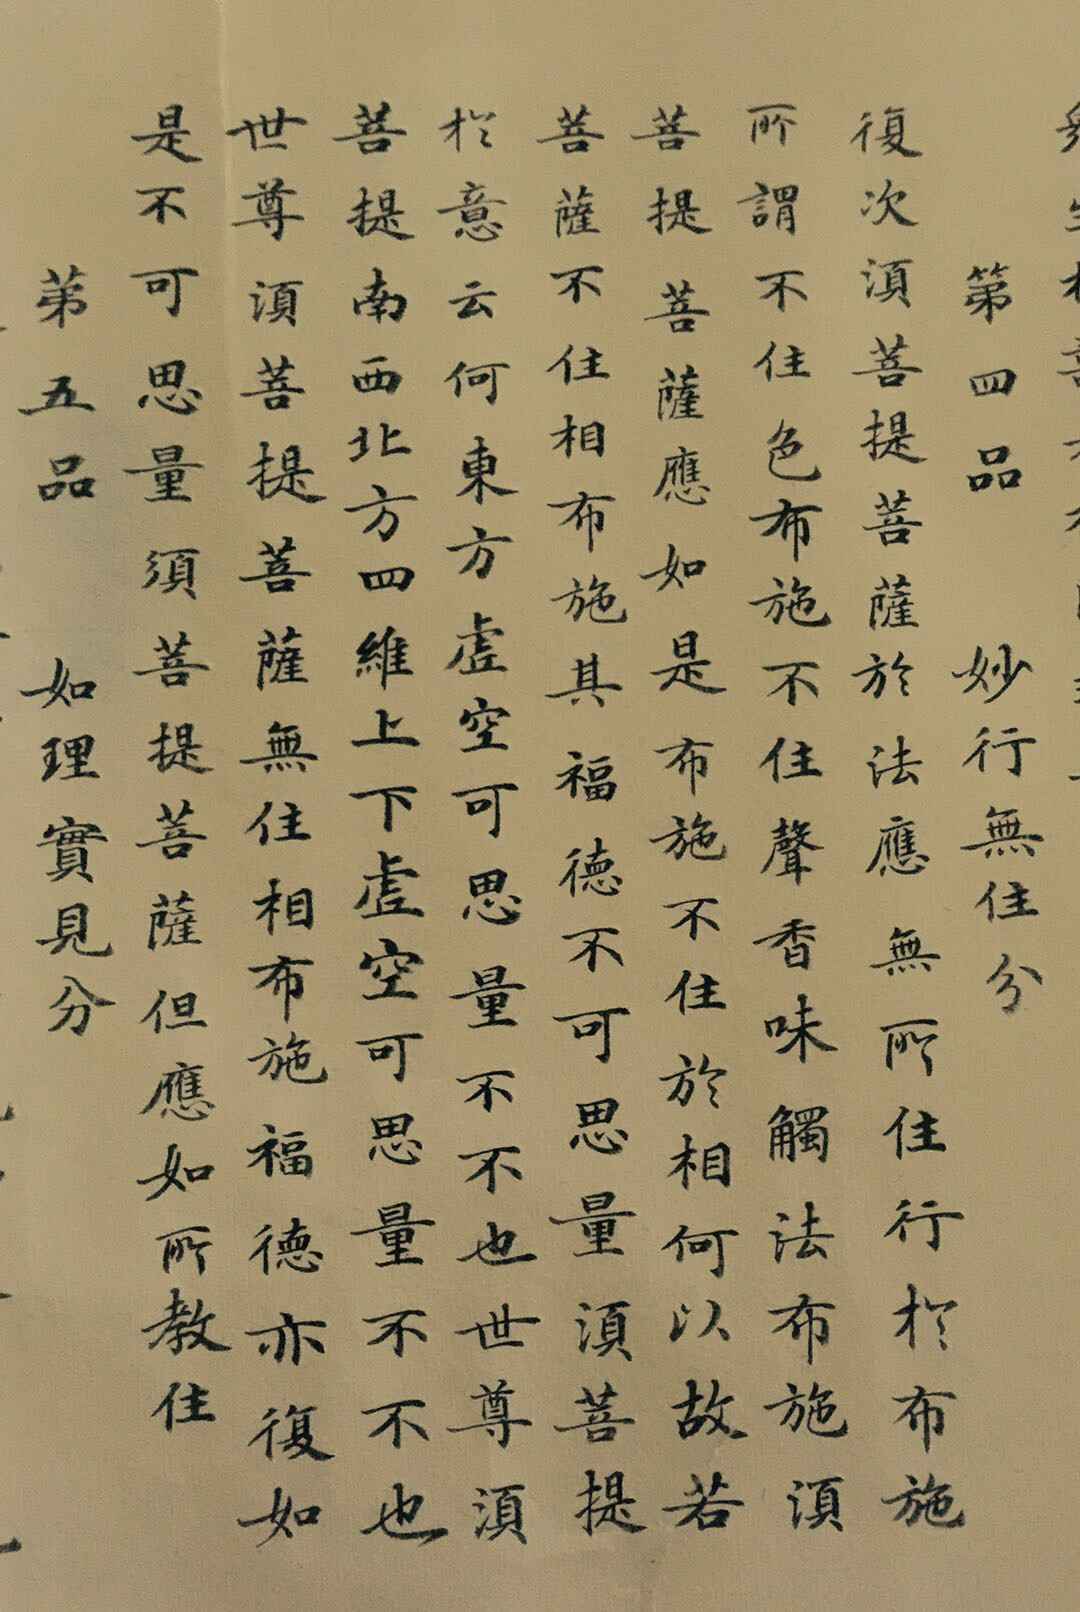 第四品 妙行無住分
復次湏菩提菩薩於法應無所住行於布施
所謂不住色布施不住聲香味觸法布施湏
菩提菩薩應如是布施不住於相何以故若
菩薩不住相布施其福德不可思量湏菩提
於意云何東方虛空可思量不不也世尊湏
菩提南西北方四維上下虛空可思量不不也
世尊湏菩提菩薩無住相布施福德亦復如
是不可思量須菩提菩薩但應如所教住
弟五品 如理實見分